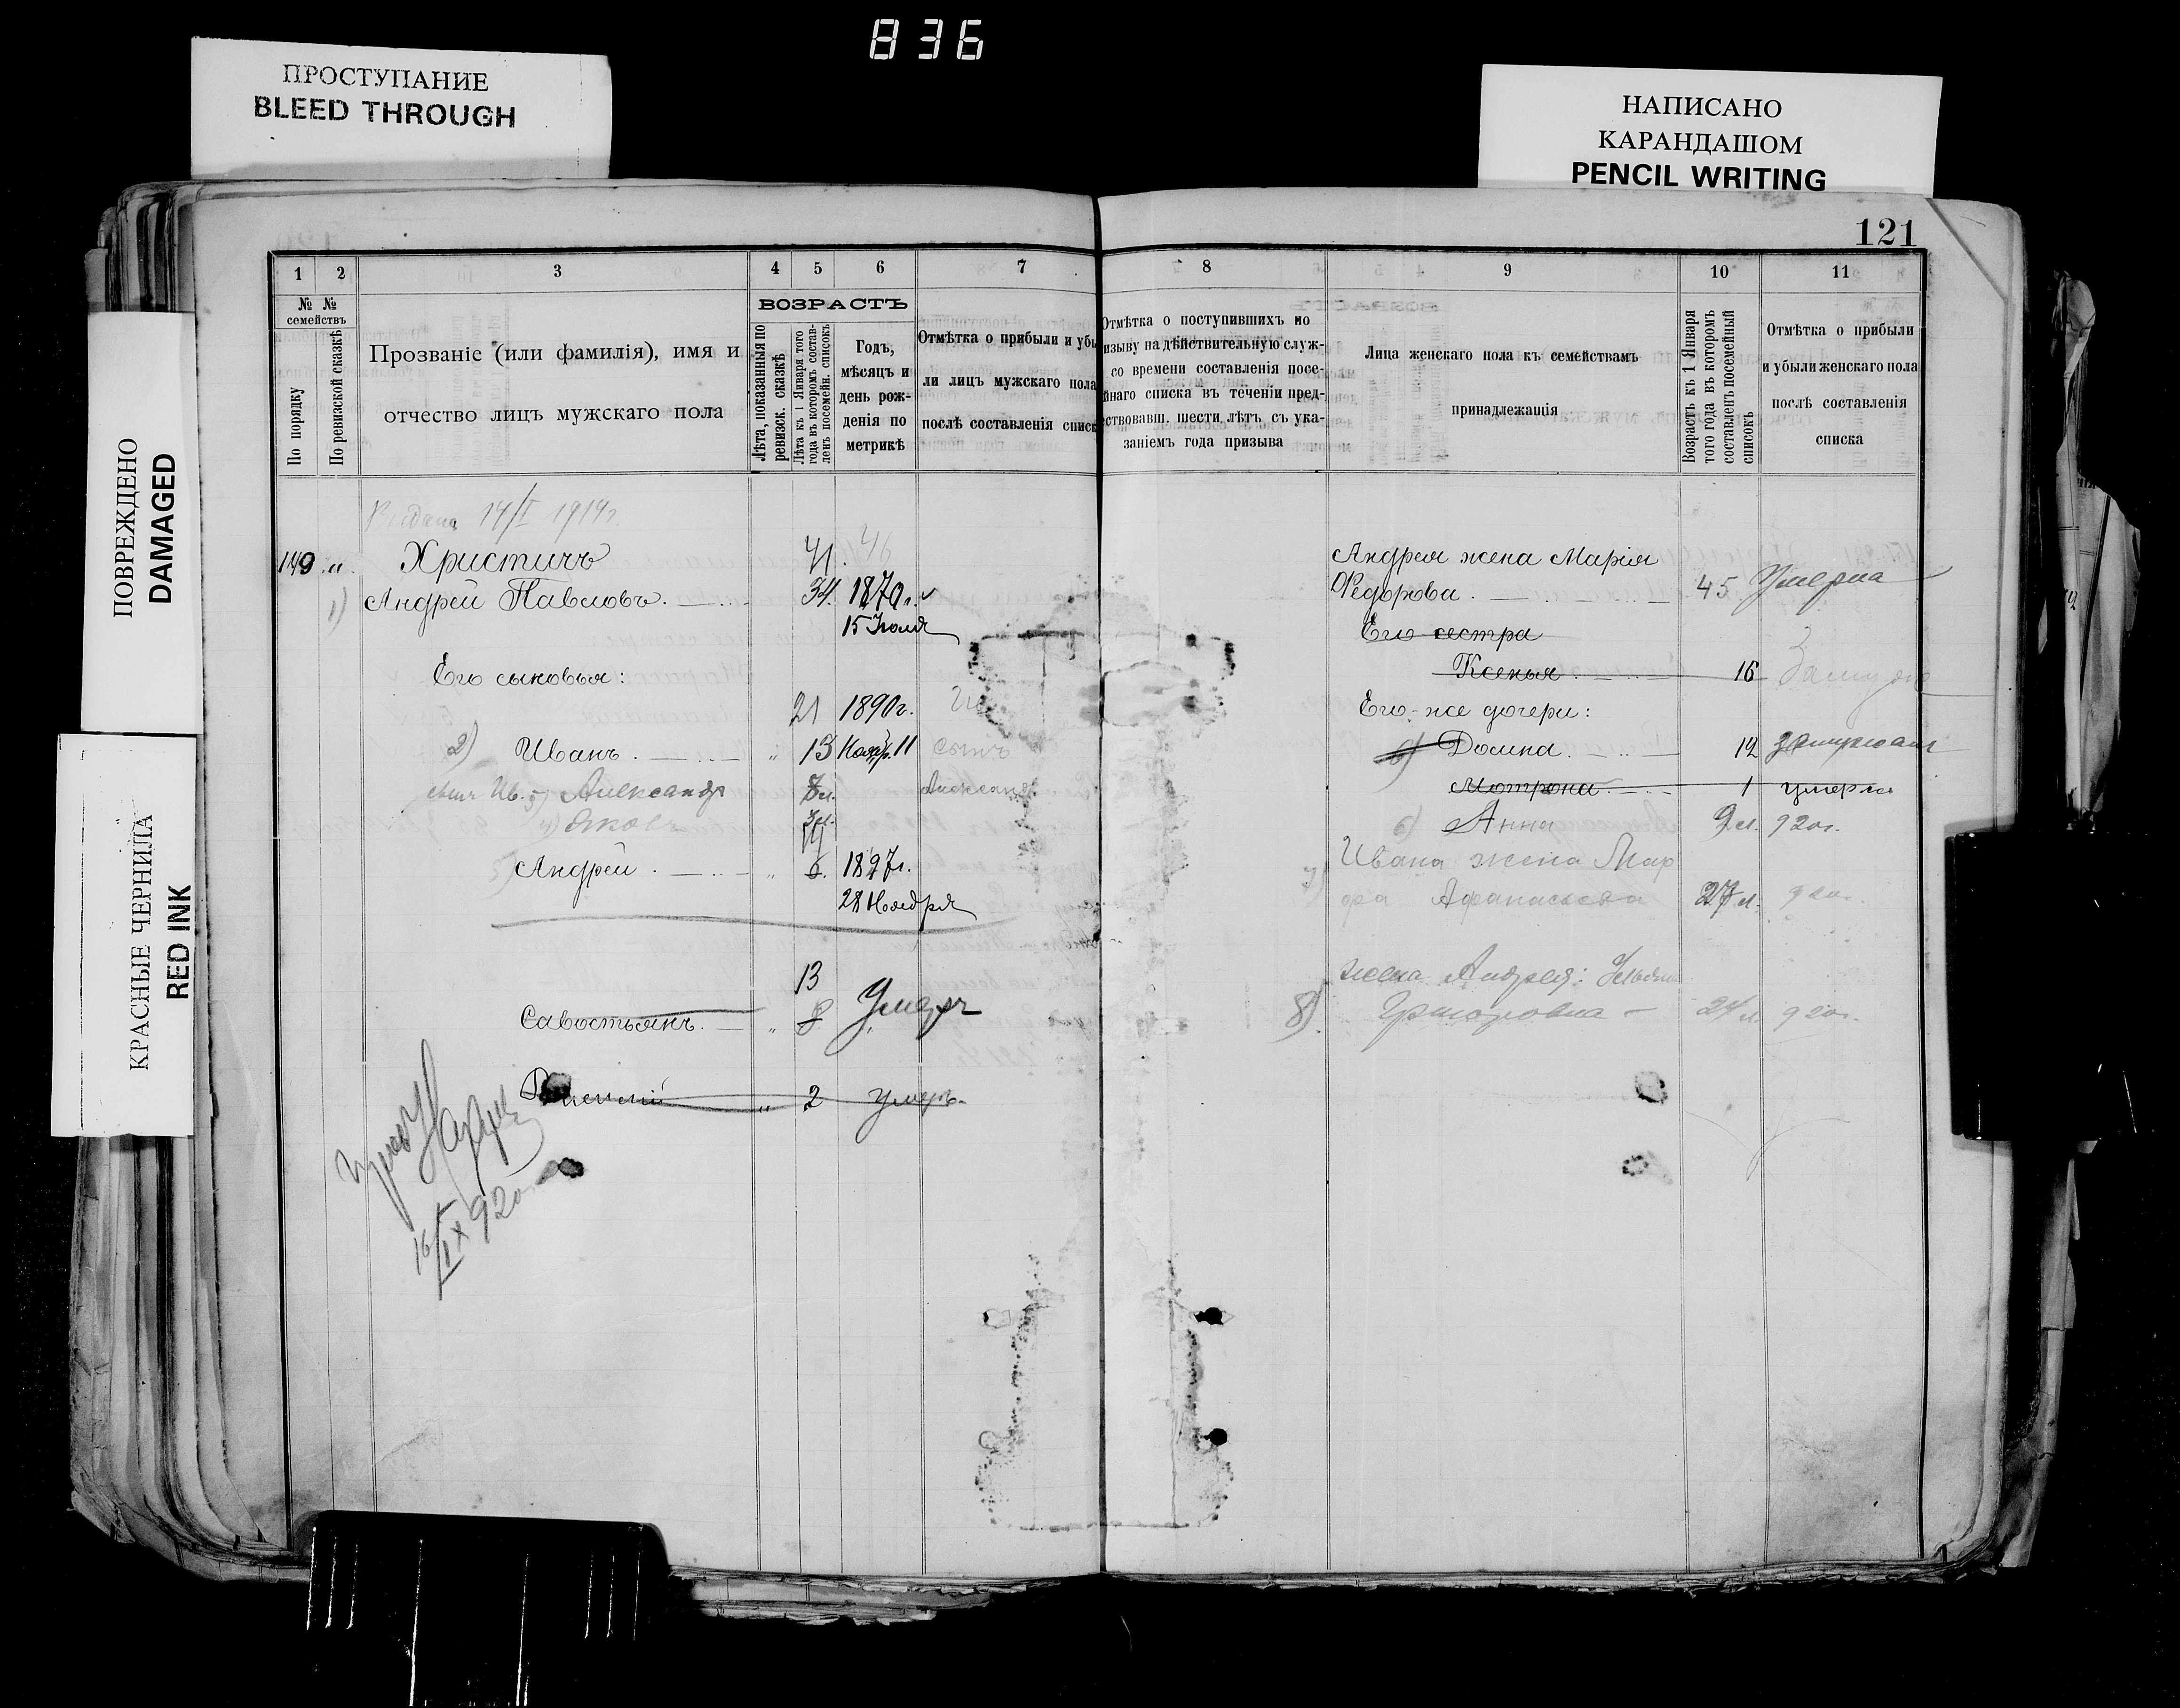 836
ПРОСТУПАНИЕ
BLEED THROUGH
НАПИСАНО
КАРАНДАШОМ
PENCIL WRITING
ПОВРЕЖДЕНО
DAMAGED
КРАСНЫЕ ЧЕРНИЛА
RED INK
121
1 2 3 4 5 6 7 8 9 10 11
№ №
семействъ
По порядку
По ревизской сказкѣ
Прозваніе (или фамилія), имя и
отчество лицъ мужскаго пола
ВОЗРАСТЪ
Лѣта, показанныя по
ревизск. сказкѣ
Лѣта къ 1 Января того
года въ которомъ состав-
ленъ посемейн. списокъ
Годъ,
мѣсяцъ и
день рож-
денія по
метрикѣ
Отмѣтка о прибыли и убы
ли лицъ мужскаго пола
послѣ составленія списк
Отмѣтка о поступившихъ по
изыву на дѣйствительную служ-
со времени составленія посе-
йнаго списка въ теченіи пред-
ствовавш. шести лѣтъ съ ука-
заніемъ года призыва
Лица женскаго пола къ семействамъ
принадлежащія
Возрастъ къ 1 Января
того года въ которомъ
составленъ посемейный
списокъ
Отмѣтка о прибыли
и убыли женскаго пола
послѣ составленія
списка
Выдана 14/I 1914г.
149 Христичъ 41. 46
1) Андрей Павловъ. 34. 1870г.
15 Іюля
Его сыновья:
21 1890г.
2) Иванъ. " 13 Ноябр. 11 сынъ
сынъ Ив. 3) Александр 8л. Александ
4) Яковъ 3л.
19
5) Андрей. " 6. 1897г.
28 Ноября
13
Савостьянъ. " 8 Умеръ
" 2 умеръ.
16/IX 920
Андрея жена Марія
Федорова. 45 Умерла
Его сестра
Ксенья. 16 Замуж
Его-же дочери:
6) Домна. 12 замужем
Мотрона. 1 умерла
6) Анна 9л. 920г.
Ивана жена Мар
7) фа Афанасьева 27л. 920г.
жена Андрея: Ульяна
8) Григоровна - 24л 920г.